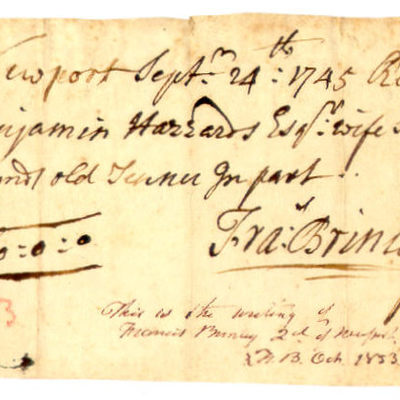 ewport Septr. 24th: 1745 R
njamin Hazzards Esqr. wife
old Tenner In part
0=0=0
Fras: Brin
3
This is the writing of
Francis Brinley 2d of Newport
B. Oct. 1853